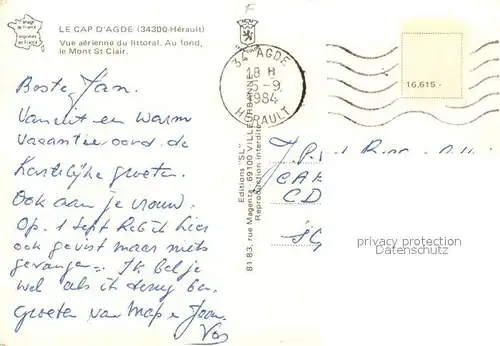 Image de France
LE CAP D'AGDE (34300-Hérault)
Vue aérienne du littoral. Au fond,
le Mont St Clair.
Beste Jan.
Vanuit een warm
vacantieoord de
Hartelijke groeten.
Ook aan je vrouw.
Op 1 sept heb ik hier
ook gevist maar niets
gevangen. Ik bel je
wel als ik terug ben.
groeten van
34 AGDE
18 H
5-9
1984
HERAULT
Editions "SL"
81-83, rue Magenta, 69100 VILLEURBANNE
Reproduction interdite
16.615
J.P.
privacy protection
Datenschutz